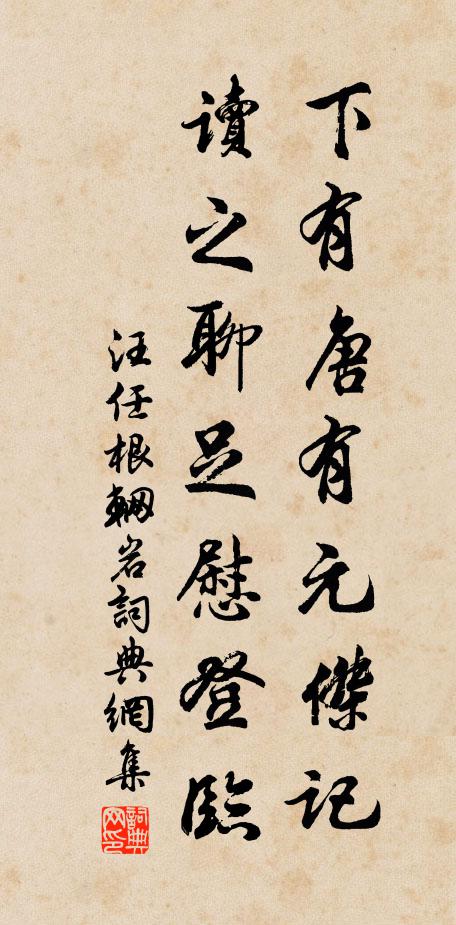 下有唐有元傑記
讀之聊足慰登臨
汪任根輞岩詞典網集
詞典网印